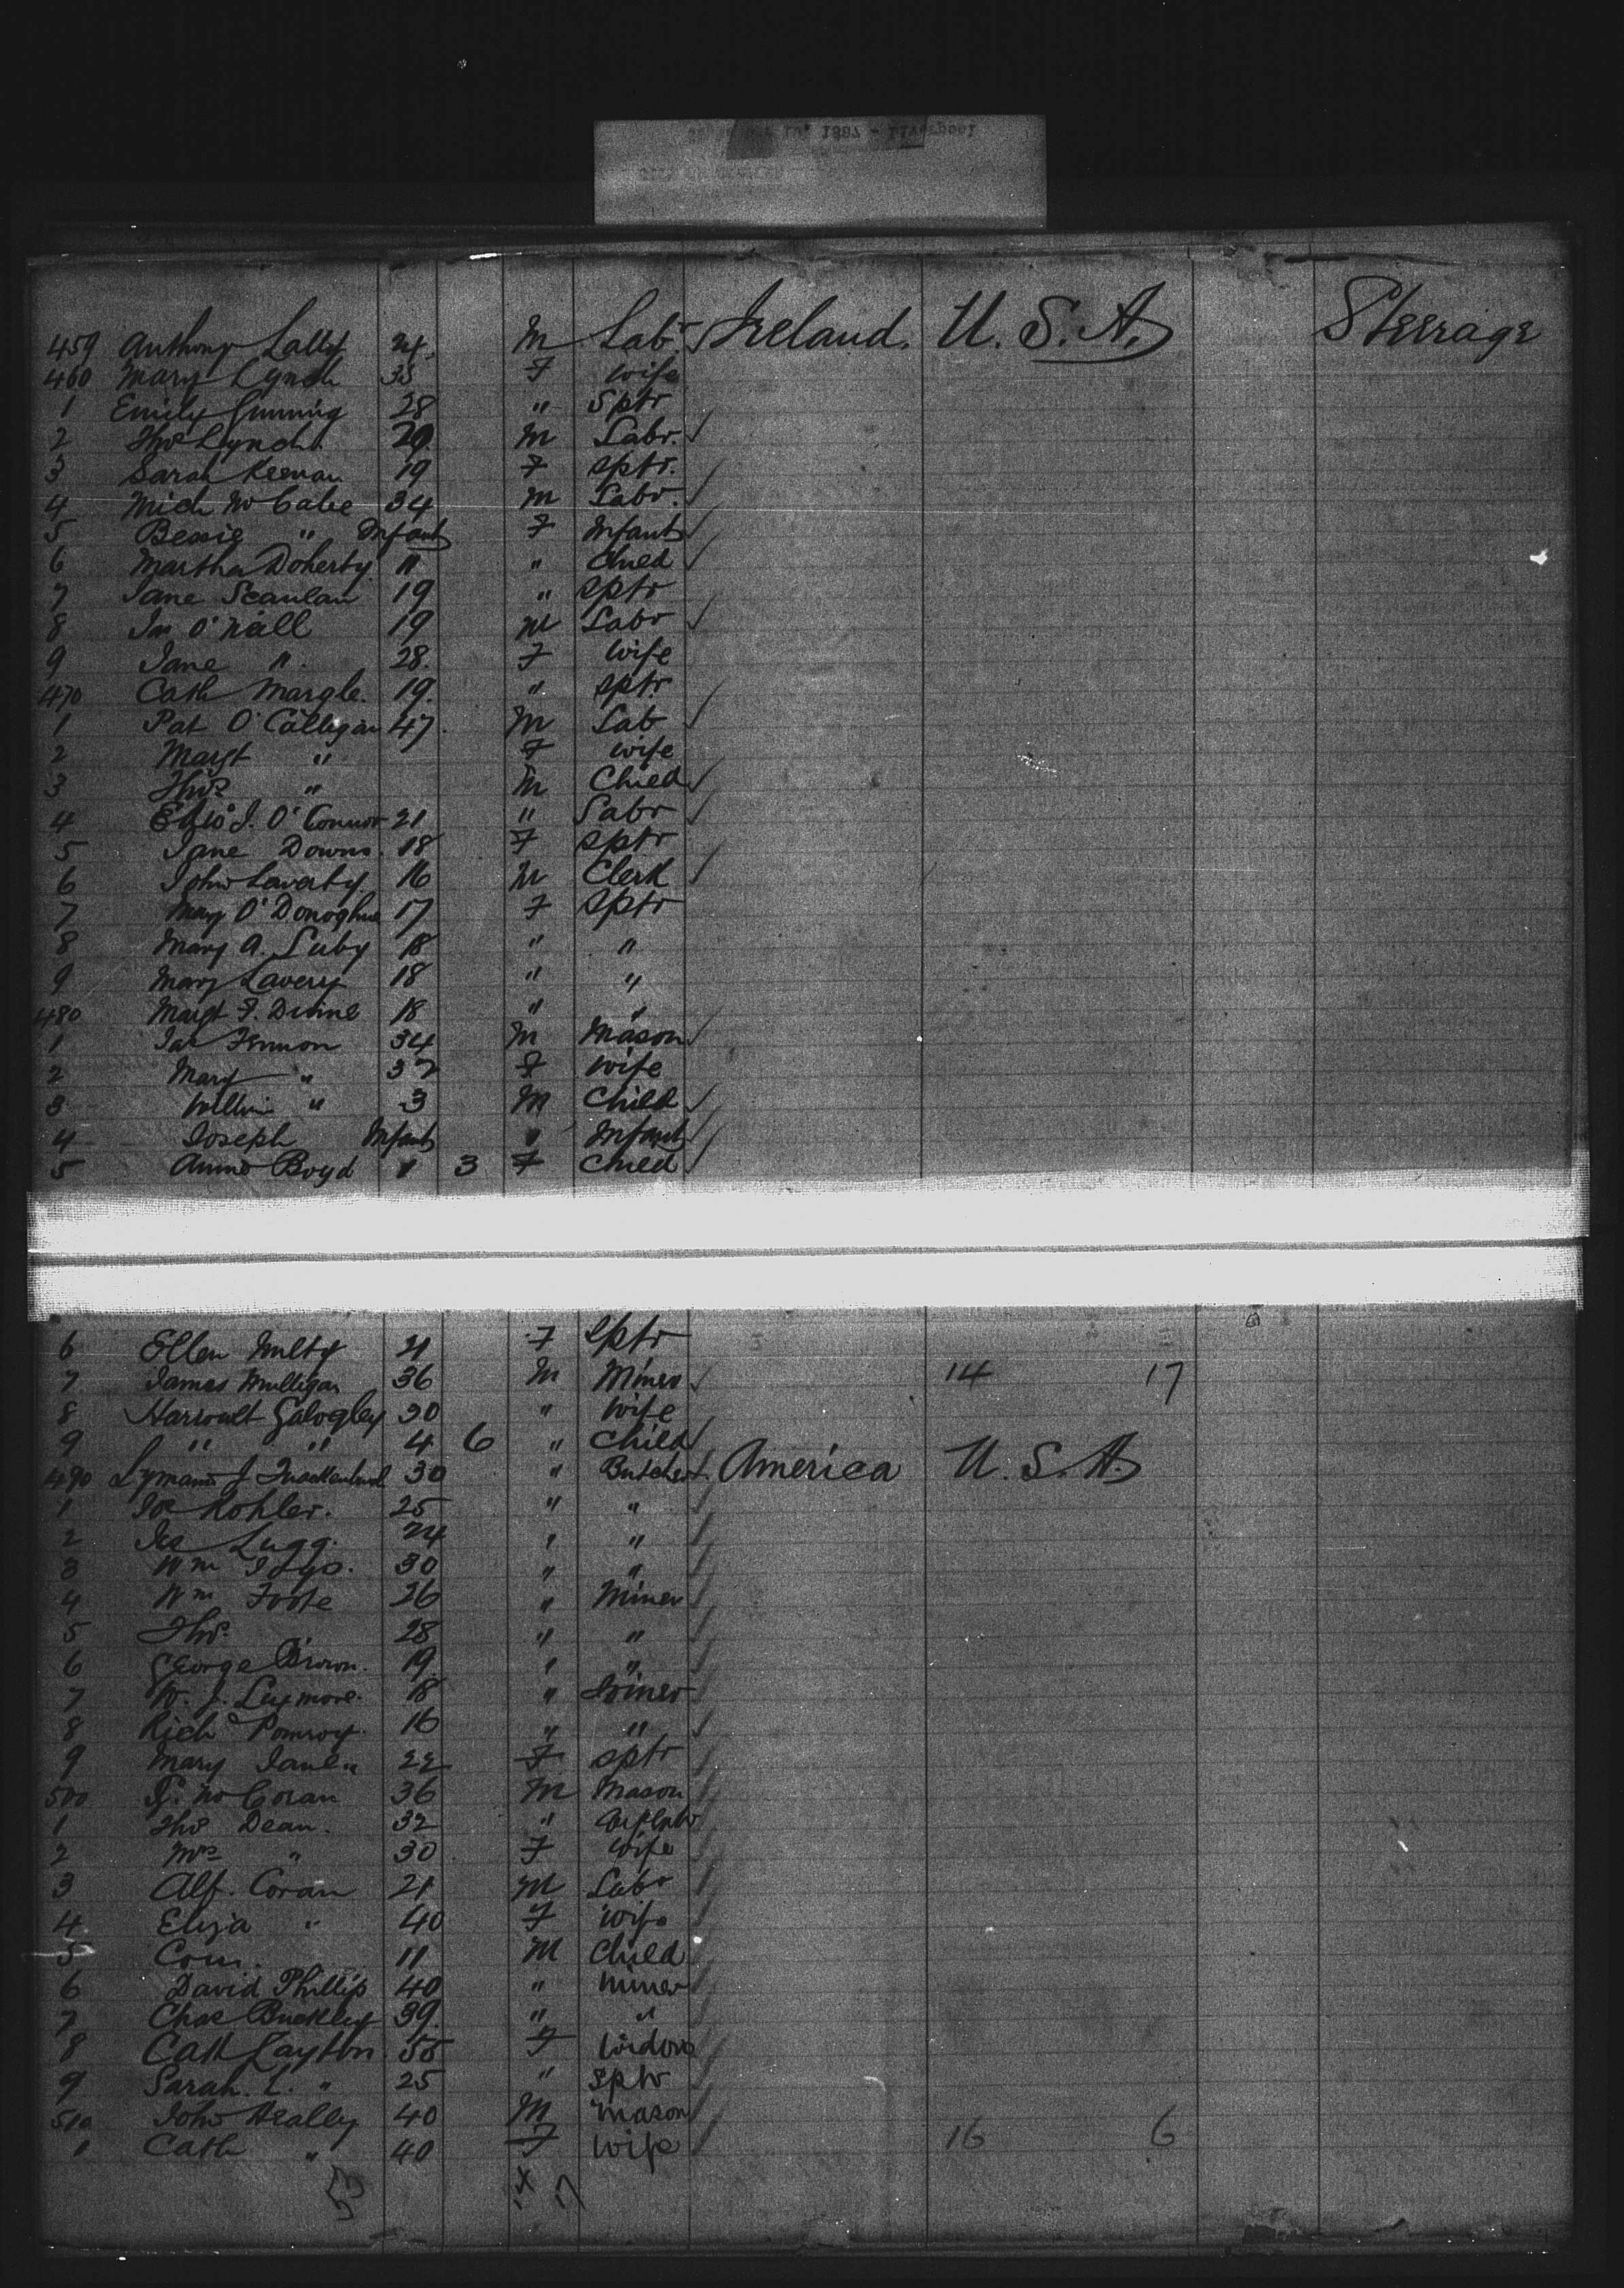 459 Anthony Lally 24 M Labr Ireland. U. S. A. Steerage
460 Mary Lynch 35 F wife
1 Emily Gunning 28 " Sptr
2 Thos Lynch 29 M Labr.
3 Sarah Keenan 19 F sptr.
4 Mich McCabe 34 M Labr.
5 Bessie " Infant F Infant
6 Martha Doherty 11 " Child
7 Jane Scanlan 19 " sptr
8 Jn O'Neill 19 M Labr
9 Jane " 28 F wife
470 Cath Margle 19 " sptr
1 Pat O'Calligan 47 M Lab
2 Margt " F wife
3 Thos " M Child
4 J. O'Connor 21 " Labr
5 Jane Downs 18 F sptr
6 John Laverty 16 M Clerk
7 Mary O'Donoghue 17 F Sptr
8 Mary A. Luby 18 " "
9 Mary Lavery 18 " "
480 Margt F. Divine 18 " "
1 Jas Fennon 34 M Mason
2 Mary " 32 F wife
3 William " 3 M Child
4 Joseph Infant " Infant
5 Annie Boyd 1 3 F Child
6 Ellen Nulty 21 F sptr
7 James Mulligan 36 M Miner 14 17
8 Harriett Galogley 30 " Wife
9 " " 4 6 " Child
490 Lyman J. 30 " Butcher America U. S. A.
1 Jos Kohler. 25 " "
2 Lugg. 24 " "
3 Wm 30 " "
4 Wm Foote 26 " Miner
5 Thos. 28 " "
6 George Brown. 19 " "
7 W. J. Luxmore. 18 " Joiner
8 Richd Pomroy. 16 " "
9 Mary Jane " 22 F sptr
500 McCoran 36 M Mason
1 Thos Dean. 32 "
2 Mrs " 30 F Wife
3 Alf. Coran 21 M Labr
4 Eliza " 40 F Wife
5 Corn. 11 M Child
6 David Phillips 40 " Miner
7 Chas Buckley 39 " "
8 Cath Layton 55 F Widow
9 Sarah. L. " 25 " sptr
510 John Healley 40 M Mason
1 Cath " 40 F Wife 16 6
53 14 17